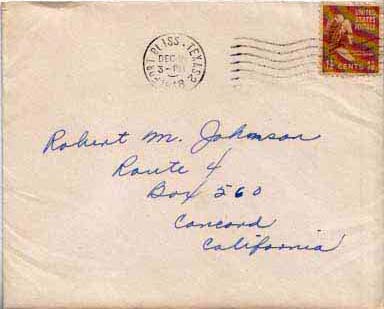 FORT BLISS, TEXAS
DEC
3-PM
1948
UNITED STATES
POSTAGE
1½ CENTS 1½
Robert M. Johnson
Route 4
Box 560
Concord
California